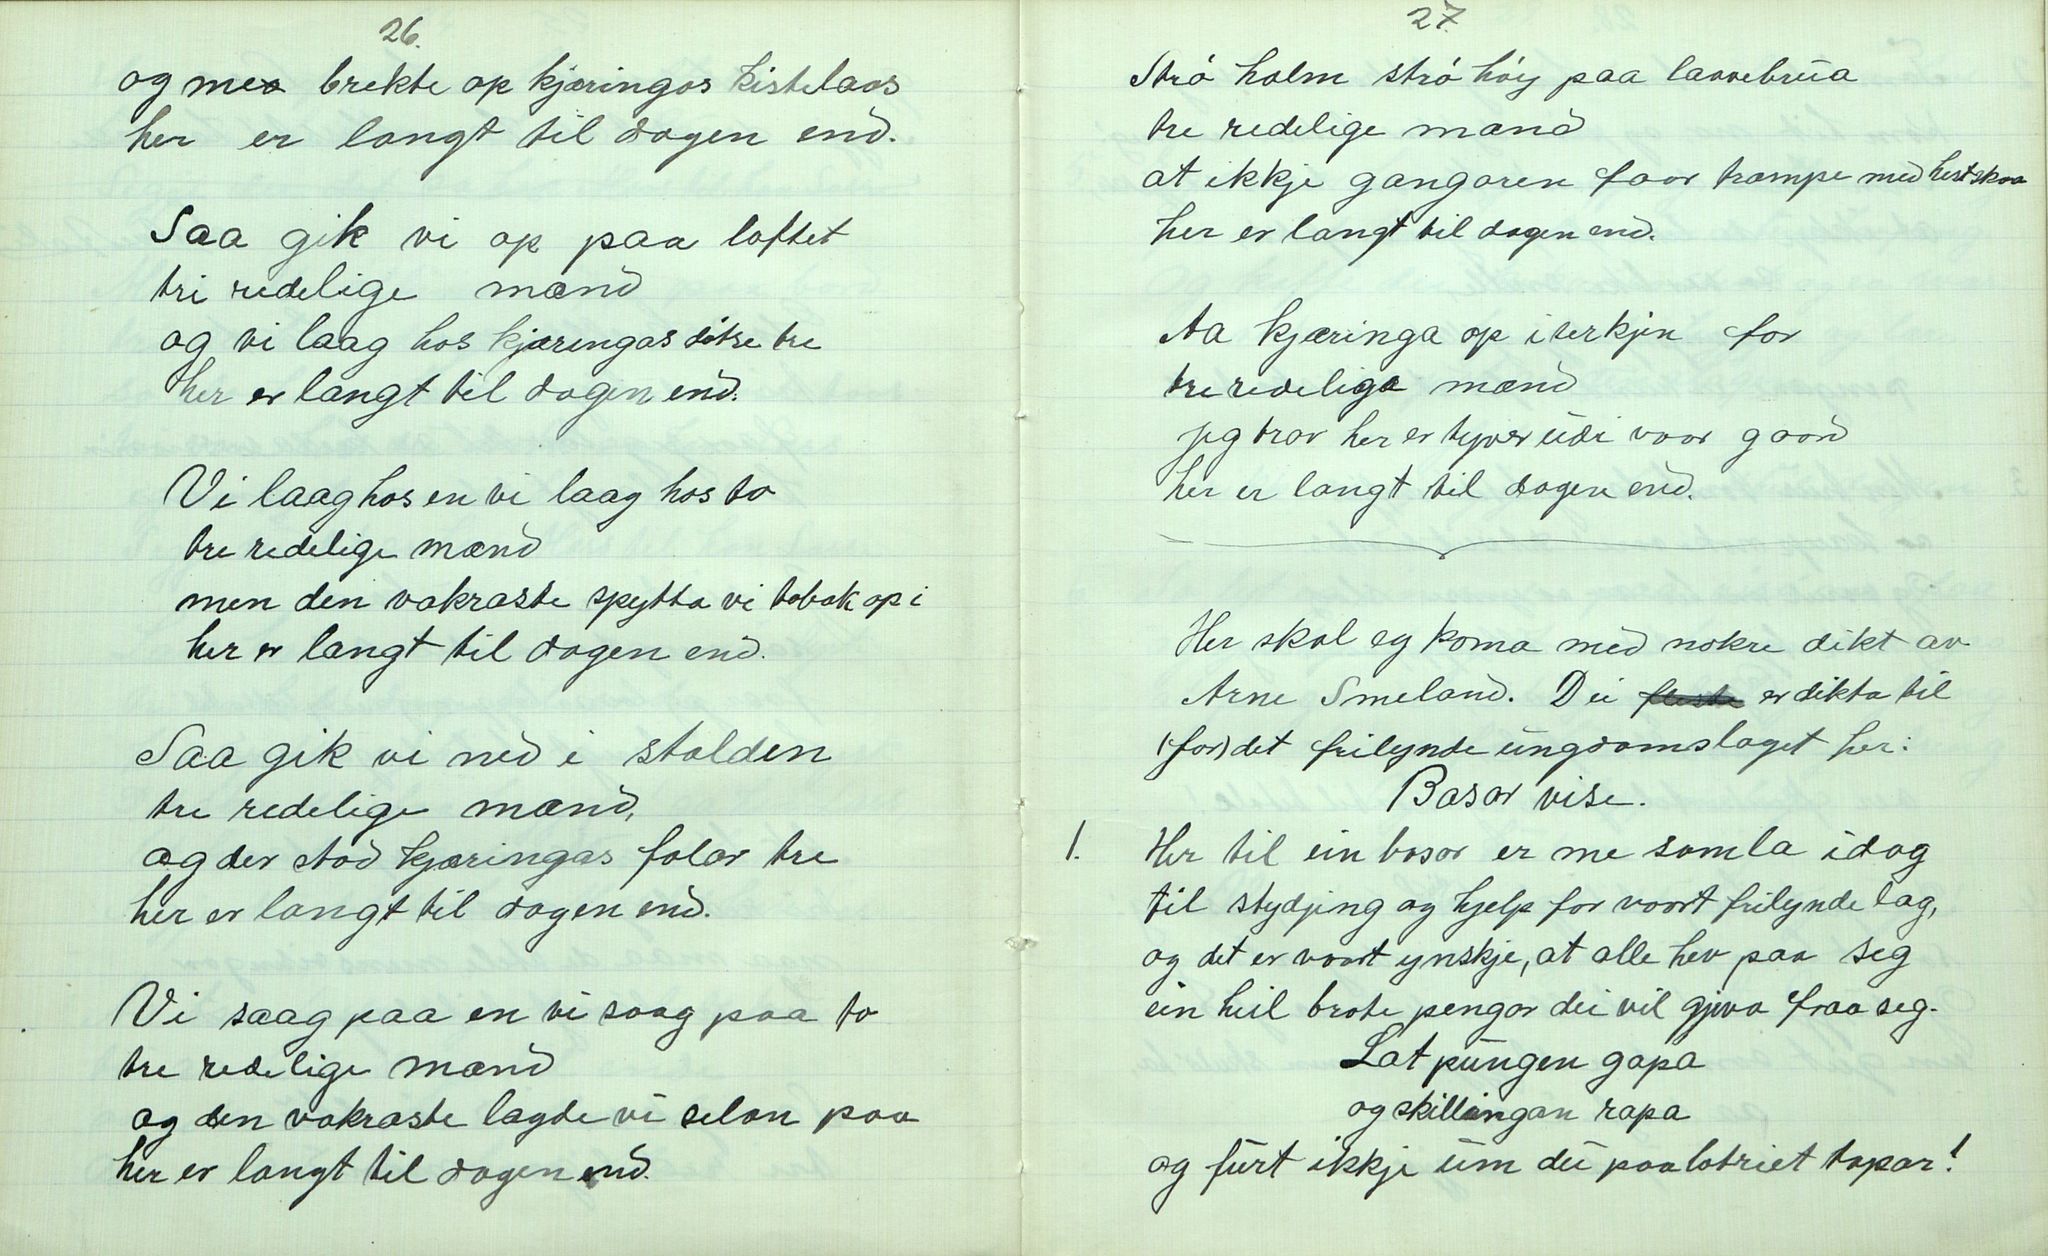 26.
og me brekte op kjæringas kistelaas
her er langt til dagen end.
Saa gik vi op paa loftet
tri redelige mænd
og vi laag hos kjæringas døtre tre
her er langt til dagen end.
Vi laag hos en vi laag hos to
tre redelige mænd
men den vakraste spytta vi tobak op i
her er langt til dagen end.
Saa gik vi ned i stalden
tre redelige mænd,
og der stod kjæringas folar tre
her er langt til dagen end.
Vi saag paa en vi saag paa to
tre redelige mænd
og den vakraste lagde vi selan paa
her er langt til dagen end.
27.
Strø halm strø høiy paa laavebrua
tre redelige mænd
at ikkje gangaren faar trampe med hestskoa
her er langt til dagen end.
Aa kjæringa op i serkjen for
tre redelige mænd
jeg tror her er tyver udi vaar gaard
her er langt til dagen end.
Her skal eg koma med nokre dikt av
Arne Smeland. Dei fleste er dikta til
(for) det frilynde ungdomslaget her:
Basar vise.
1. Her til ein basar er me samla idag
til stydjing og hjelp for vaart frilynde lag,
og det er vaart ynskje, at alle hev paa seg
ein heil brote pengar dei vil gjeva fraa seg.
Lat pungen gapa
og skillingan rapa
og furt ikkje um du paa lotriet tapar!